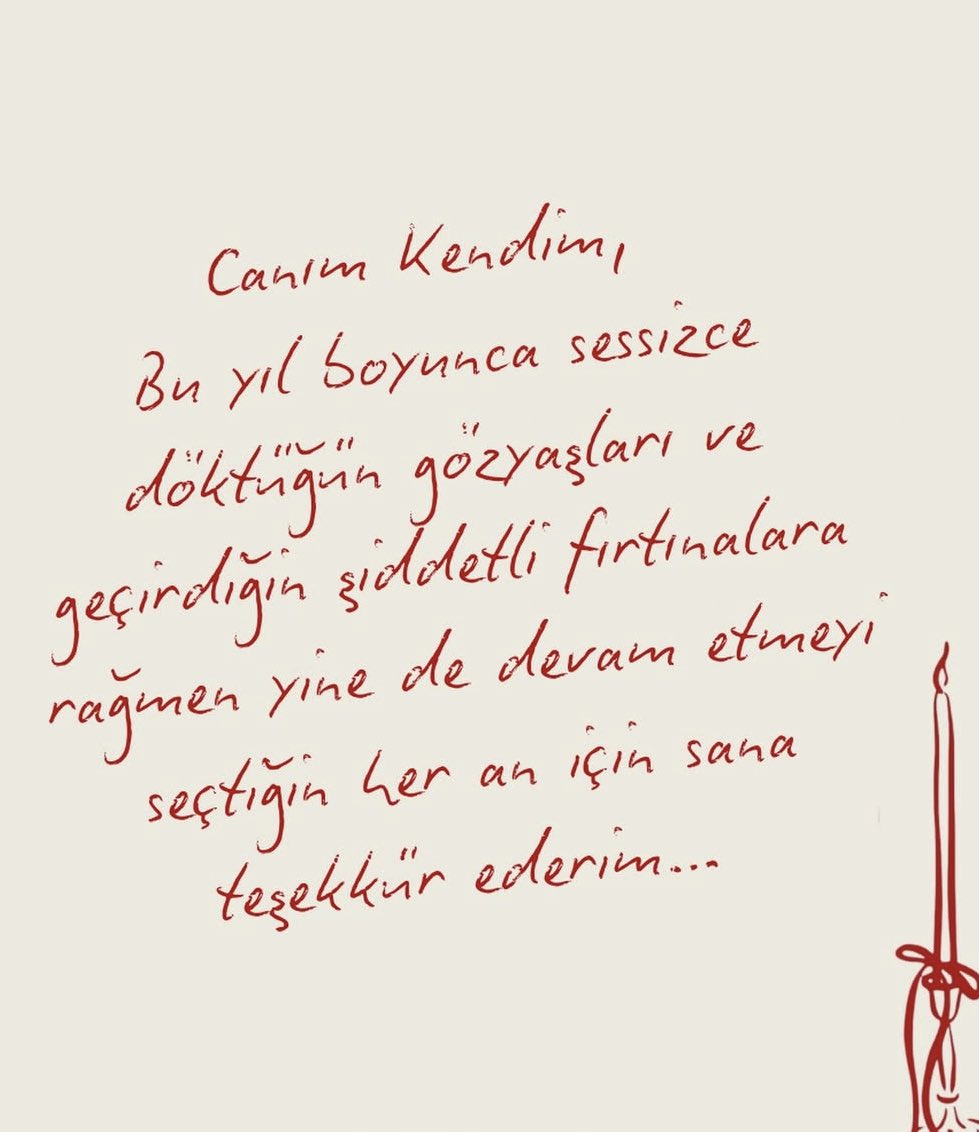 Canım Kendim,
Bu yıl boyunca sessizce
döktüğün gözyaşları ve
geçirdiğin şiddetli fırtınalara
rağmen yine de devam etmeyi
seçtiğin her an için sana
teşekkür ederim...